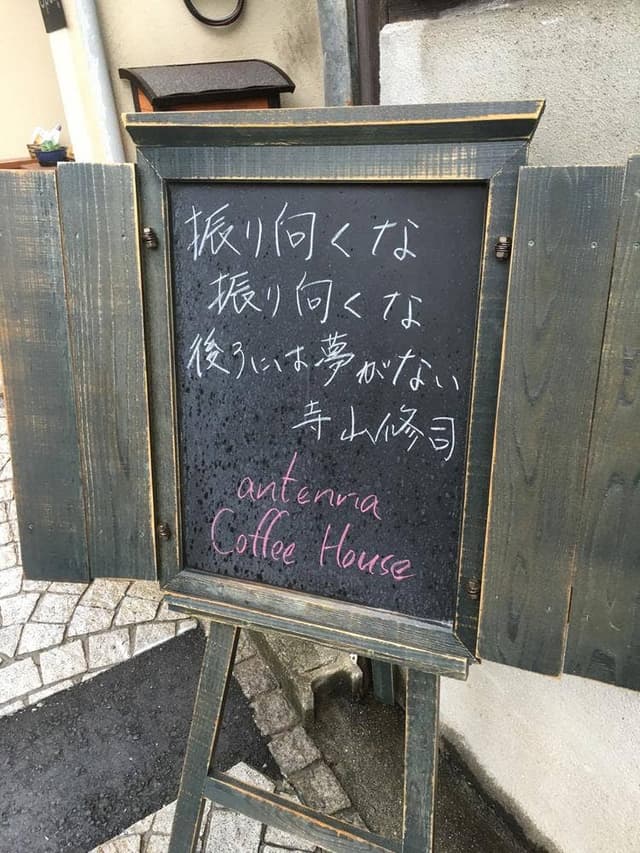 振り向くな
振り向くな
後ろには夢がない
寺山修司
antenna
Coffee House